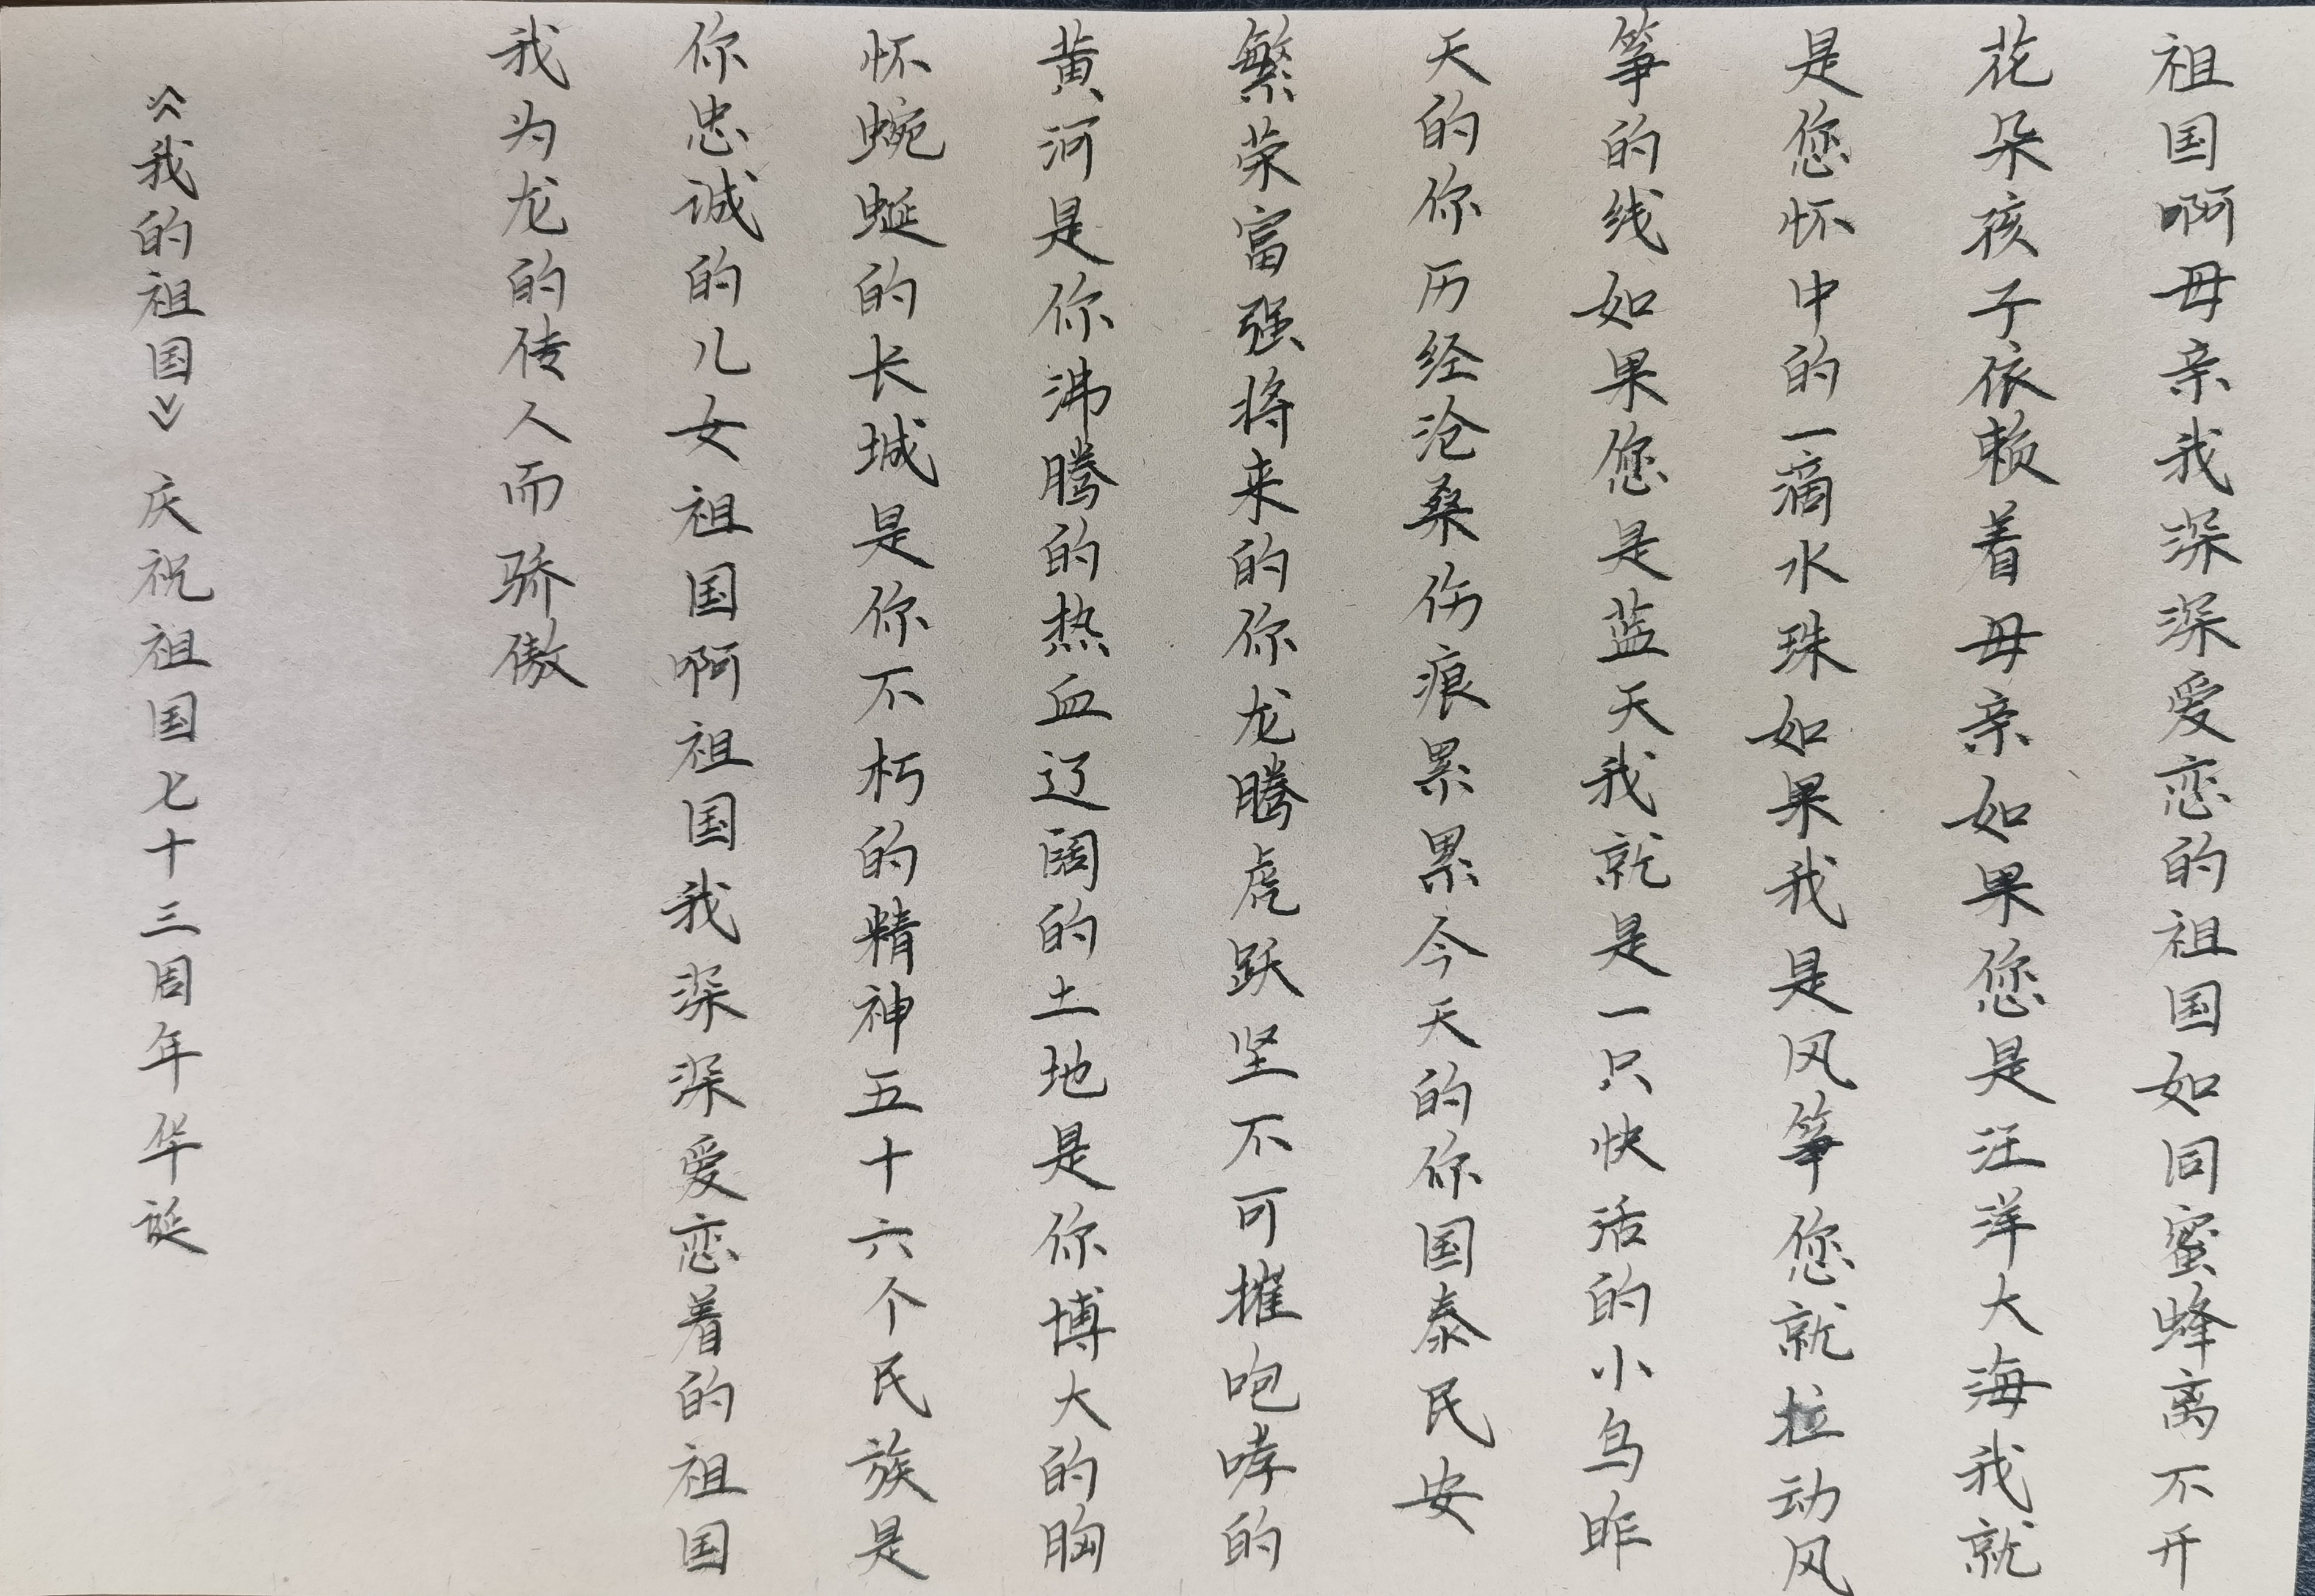 祖国啊母亲我深深爱恋的祖国如同蜜蜂离不开
花朵孩子依赖着母亲如果您是汪洋大海我就
是您怀中的一滴水珠如果我是风筝您就拉动风
筝的线如果您是蓝天我就是一只快活的小鸟昨
天的你历经沧桑伤痕累累今天的你国泰民安
繁荣富强将来的你龙腾虎跃坚不可摧咆哮的
黄河是你沸腾的热血辽阔的土地是你博大的胸
怀蜿蜒的长城是你不朽的精神五十六个民族是
你忠诚的儿女祖国啊祖国我深深爱恋着的祖国
我为龙的传人而骄傲
《我的祖国》庆祝祖国七十三周年华诞